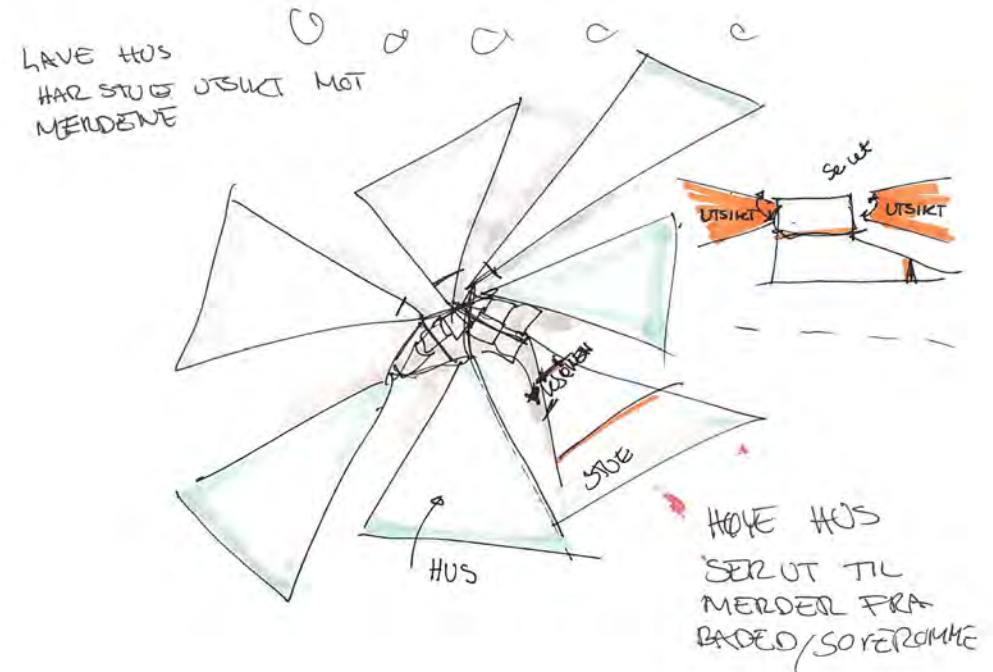 LAVE HUS
HAR STUE UTSIKT MOT
MERDENE
UTSIKT
UTSIKT
STUE
HUS
HØYE HUS
SER UT TIL
MERDER FRA
BADED/SOVEROMME